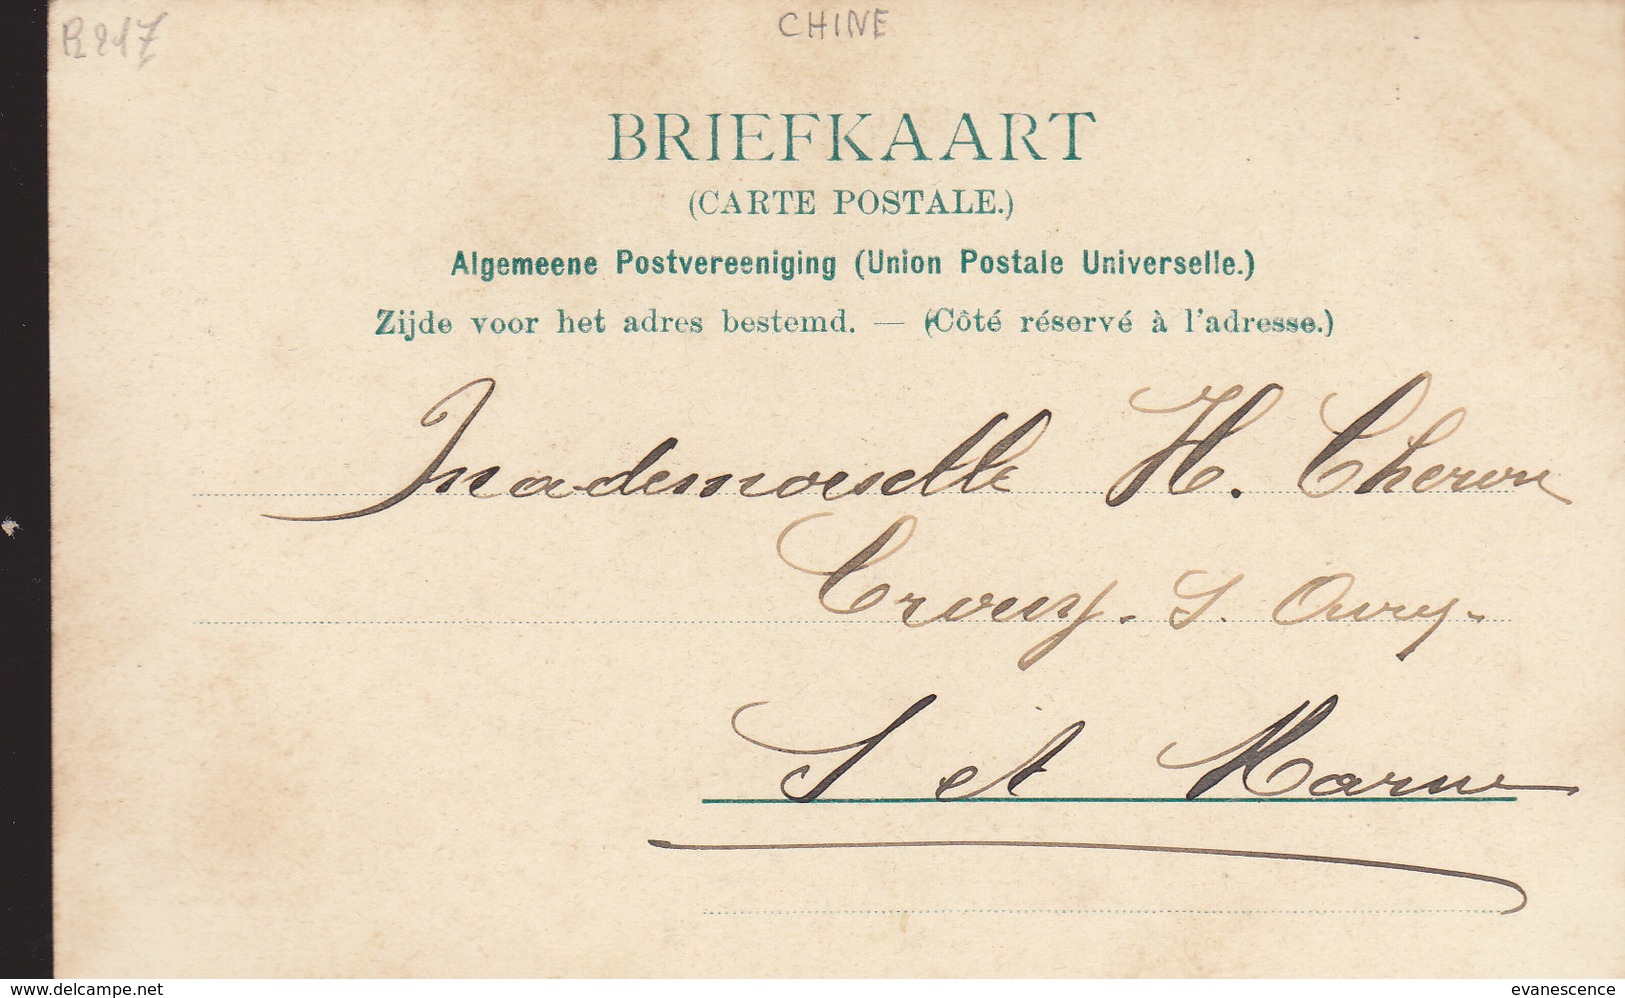 R217
CHINE
BRIEFKAART
(CARTE POSTALE.)
Algemeene Postvereeniging (Union Postale Universelle.)
Zijde voor het adres bestemd. — (Côté réservé à l'adresse.)
Mademoiselle H. Cheron
Crouy. S. Ourcq.
S et Marne
www.delcampe.net
evanescence